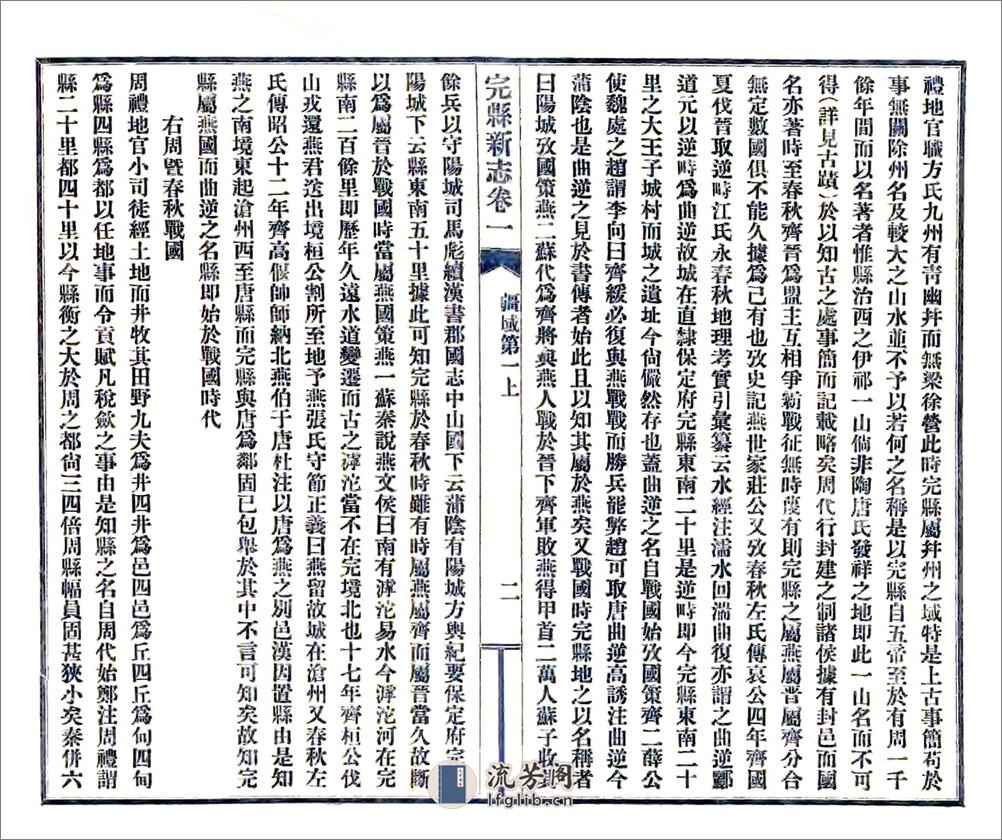 禮地官職方氏九州有靑幽幷而無梁徐營此時完縣屬幷州之域特是上古事簡苟於
事無關除州名及較大之山水並不予以若何之名稱是以完縣自五帝至於有周一千
餘年間而以名著者惟縣治西之伊祁一山倘非陶唐氏發祥之地即此一山名而不可
得(詳見古蹟)於以知古之處事簡而記載略矣周代行封建之制諸侯據有封邑而國
名亦著時至春秋齊晉爲盟主互相爭霸戰征無時蔑有則完縣之屬燕屬晋屬齊分合
無定數國俱不能久據爲己有也攷史記燕世家莊公又攷春秋左氏傳哀公四年齊國
夏伐晉取逆畤江氏永春秋地理考實引彙纂云水經注濡水回湍曲復亦謂之曲逆酈
道元以逆畤爲曲逆故城在直隸保定府完縣東南二十里是逆畤即今完縣東南二十
里之大王子城村而城之遺址今尙儼然存也蓋曲逆之名自戰國始攷國策齊二薛公
使魏處之趙謂李向曰齊緩必復與燕戰戰而勝兵罷弊趙可取唐曲逆高誘注曲逆今
蒲陰也是曲逆之見於書傳者始此且以知其屬於燕矣又戰國時完縣地之以名稱者
曰陽城攷國策燕二蘇代爲齊將與燕人戰於晉下齊軍敗燕得甲首二萬人蘇子收其
完縣新志卷一
疆域第一上
二
餘兵以守陽城司馬彪續漢書郡國志中山國下云蒲陰有陽城方輿紀要保定府完
陽城下云縣東南五十里據此可知完縣於春秋時雖有時屬燕屬齊而屬晉當久故斷
以爲屬晉於戰國時當屬燕國策燕一蘇秦說燕文侯曰南有滹沱易水今滹沱河在完
縣南二百餘里即歷年久遠水道變遷而古之滹沱當不在完境北也十七年齊桓公伐
山戎還燕君送出境桓公割所至地予燕張氏守節正義曰燕留故城在滄州又春秋左
氏傳昭公十二年齊高偃帥師納北燕伯于唐杜注以唐爲燕之別邑漢因置縣由是知
燕之南境東起滄州西至唐縣而完縣與唐爲鄰固已包舉於其中不言可知矣故知完
縣屬燕國而曲逆之名縣即始於戰國時代
右周曁春秋戰國
周禮地官小司徒經土地而井牧其田野九夫爲井四井爲邑四邑爲丘四丘爲甸四甸
爲縣四縣爲都以任地事而令貢賦凡稅歛之事由是知縣之名自周代始鄭注周禮謂
縣二十里都四十里以今縣衡之大於周之都尙三四倍周縣幅員固甚狹小矣秦併六
流芳阁
lfglib.cn